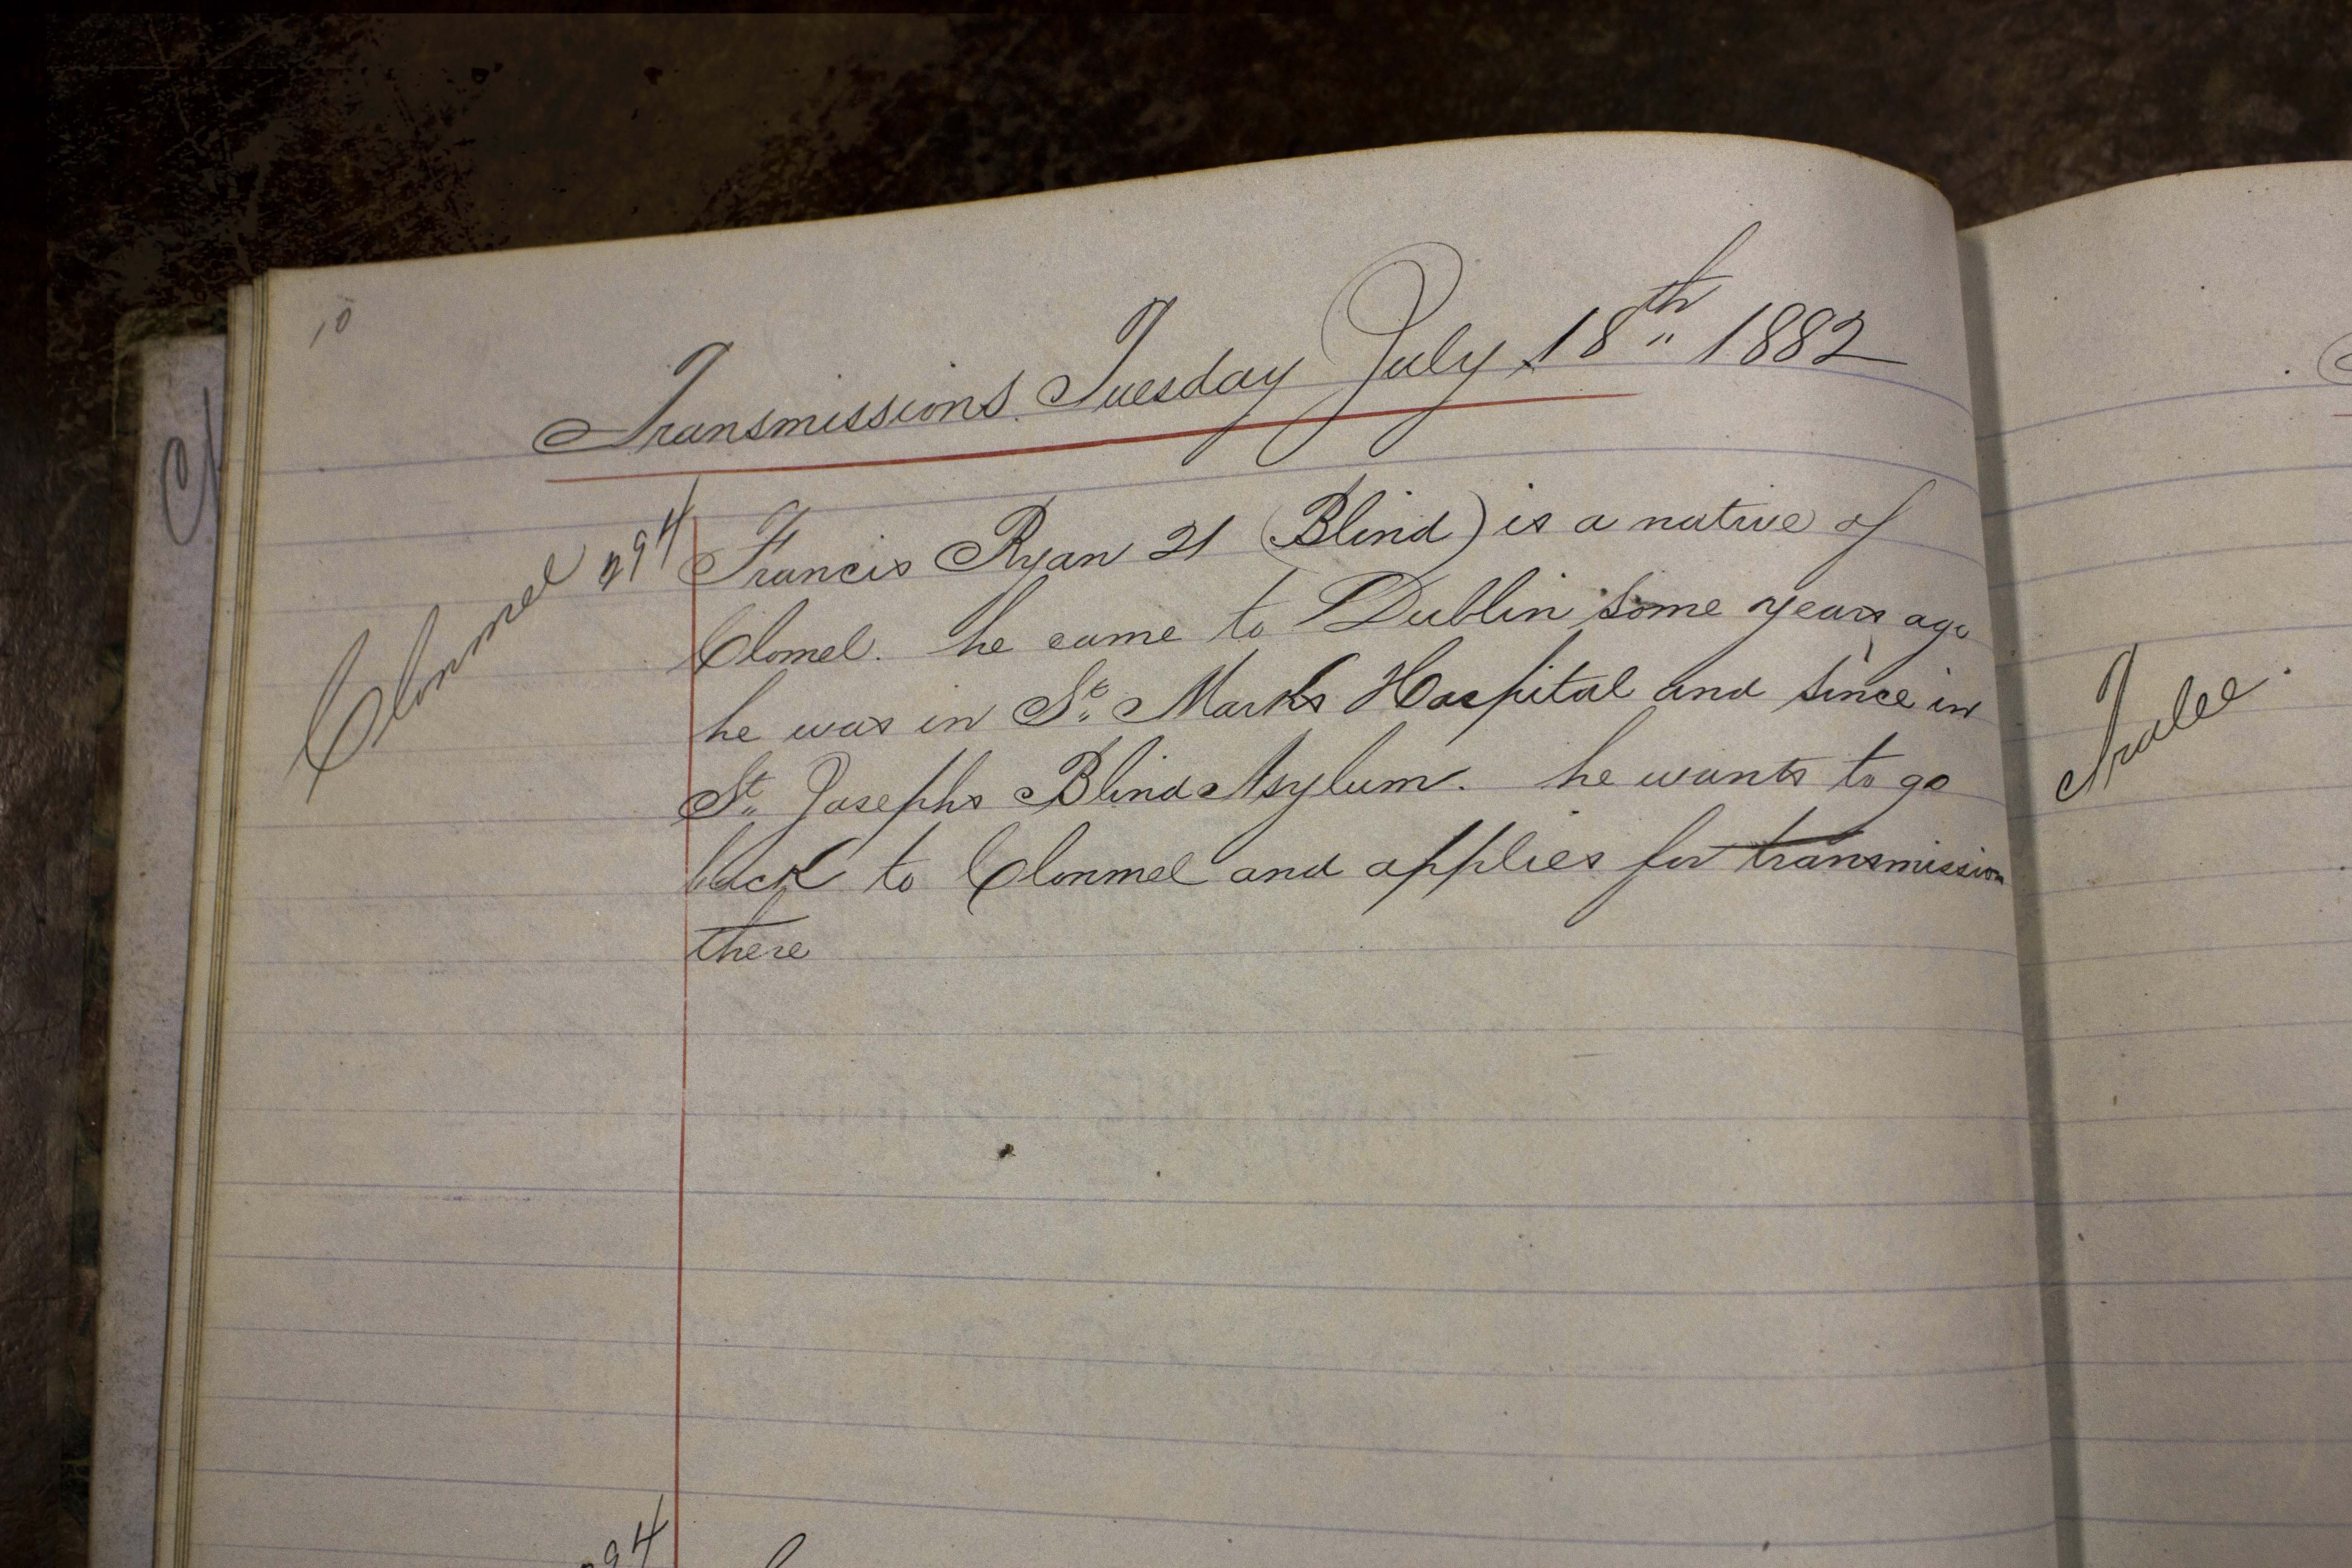 10
Transmissions. Tuesday July 18th 1882
Clonmel 294
Francis Ryan 21 (Blind) is a native of
Clomel. he came to Dublin some years ago
he was in St. Marks Hospital and since in
St. Josephs Blind Asylum. he wants to go
back to Clonmel and applies for transmission
there
Tralee.